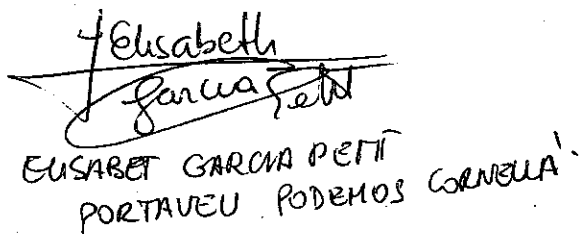 Elisabeth
Garcia Petit
ELISABET GARCIA PETIT
PORTAVEU PODEMOS CORNELLÀ.